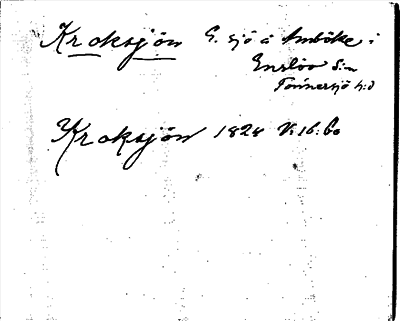 Kroksjön G. sjö å Amböke i
Enslöv S:n
Tönnersjö h:d
Kroksjön 1828 V:16:60